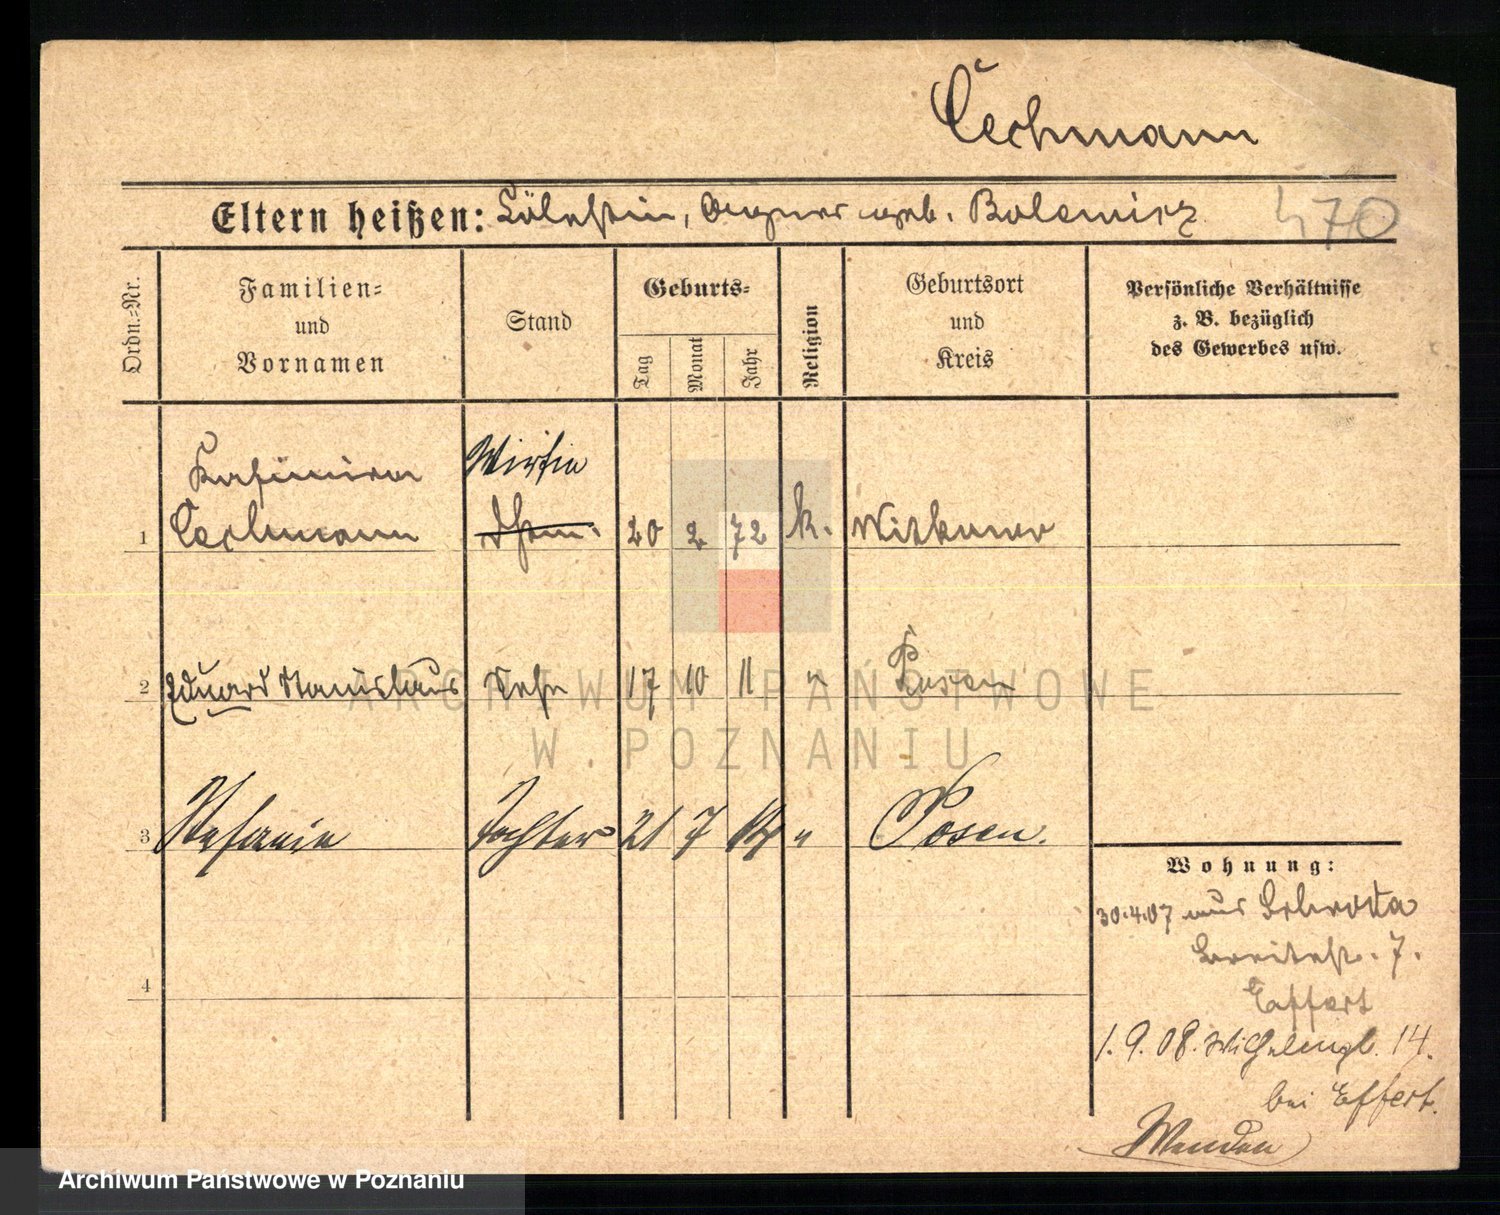 Cechmann
Eltern heißen: Cölestin, Agnes geb. Bolewicz 470
Ordn.-Nr.
Familien-
und
Vornamen
Stand
Geburts-
Tag
Monat
Jahr
Religion
Geburtsort
und
Kreis
Persönliche Verhältnisse
z. B. bezüglich
des Gewerbes usw.
Kasimira Wirtin
1 Cechmann 20 2 72 k. Witkowo
2 Eduard Stanislaus Sohn 17 10 11 " Posen
3 Stefanie Tochter 21 7 14 " Posen.
Wohnung:
30.4.07 aus Schroda
Breitestr. 7.
Effert
4
1.9.08. Wilhelmpl. 14.
bei Effert.
ARCHIWUM PAŃSTWOWE
W POZNANIU
Archiwum Państwowe w Poznaniu